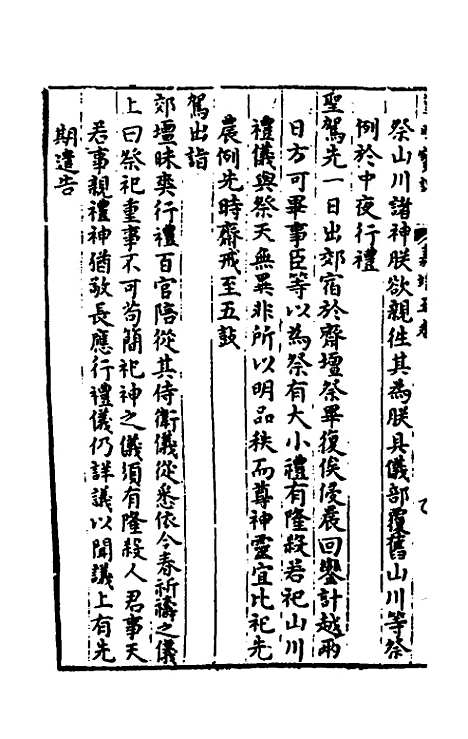 祭山川諸神朕欲親徃其為朕具儀部覆舊山川等祭
例於中夜行禮
聖駕先一日出郊宿於齋壇祭畢復俟侵晨回鑾計越兩
日方可畢事臣等以為祭有大小禮有隆殺若祀山川
禮儀與祭天無異非所以明品秩而尊神靈宜比祀先
晨例先時齋戒至五鼓
駕出詣
郊壇昧爽行禮百官陪從其侍衛儀從悉依今春祈禱之儀
上曰祭祀重事不可苟簡祀神之儀須有隆殺人君事天
若事親禮神猶敬長應行禮儀仍詳議以聞議上有先
期遣告